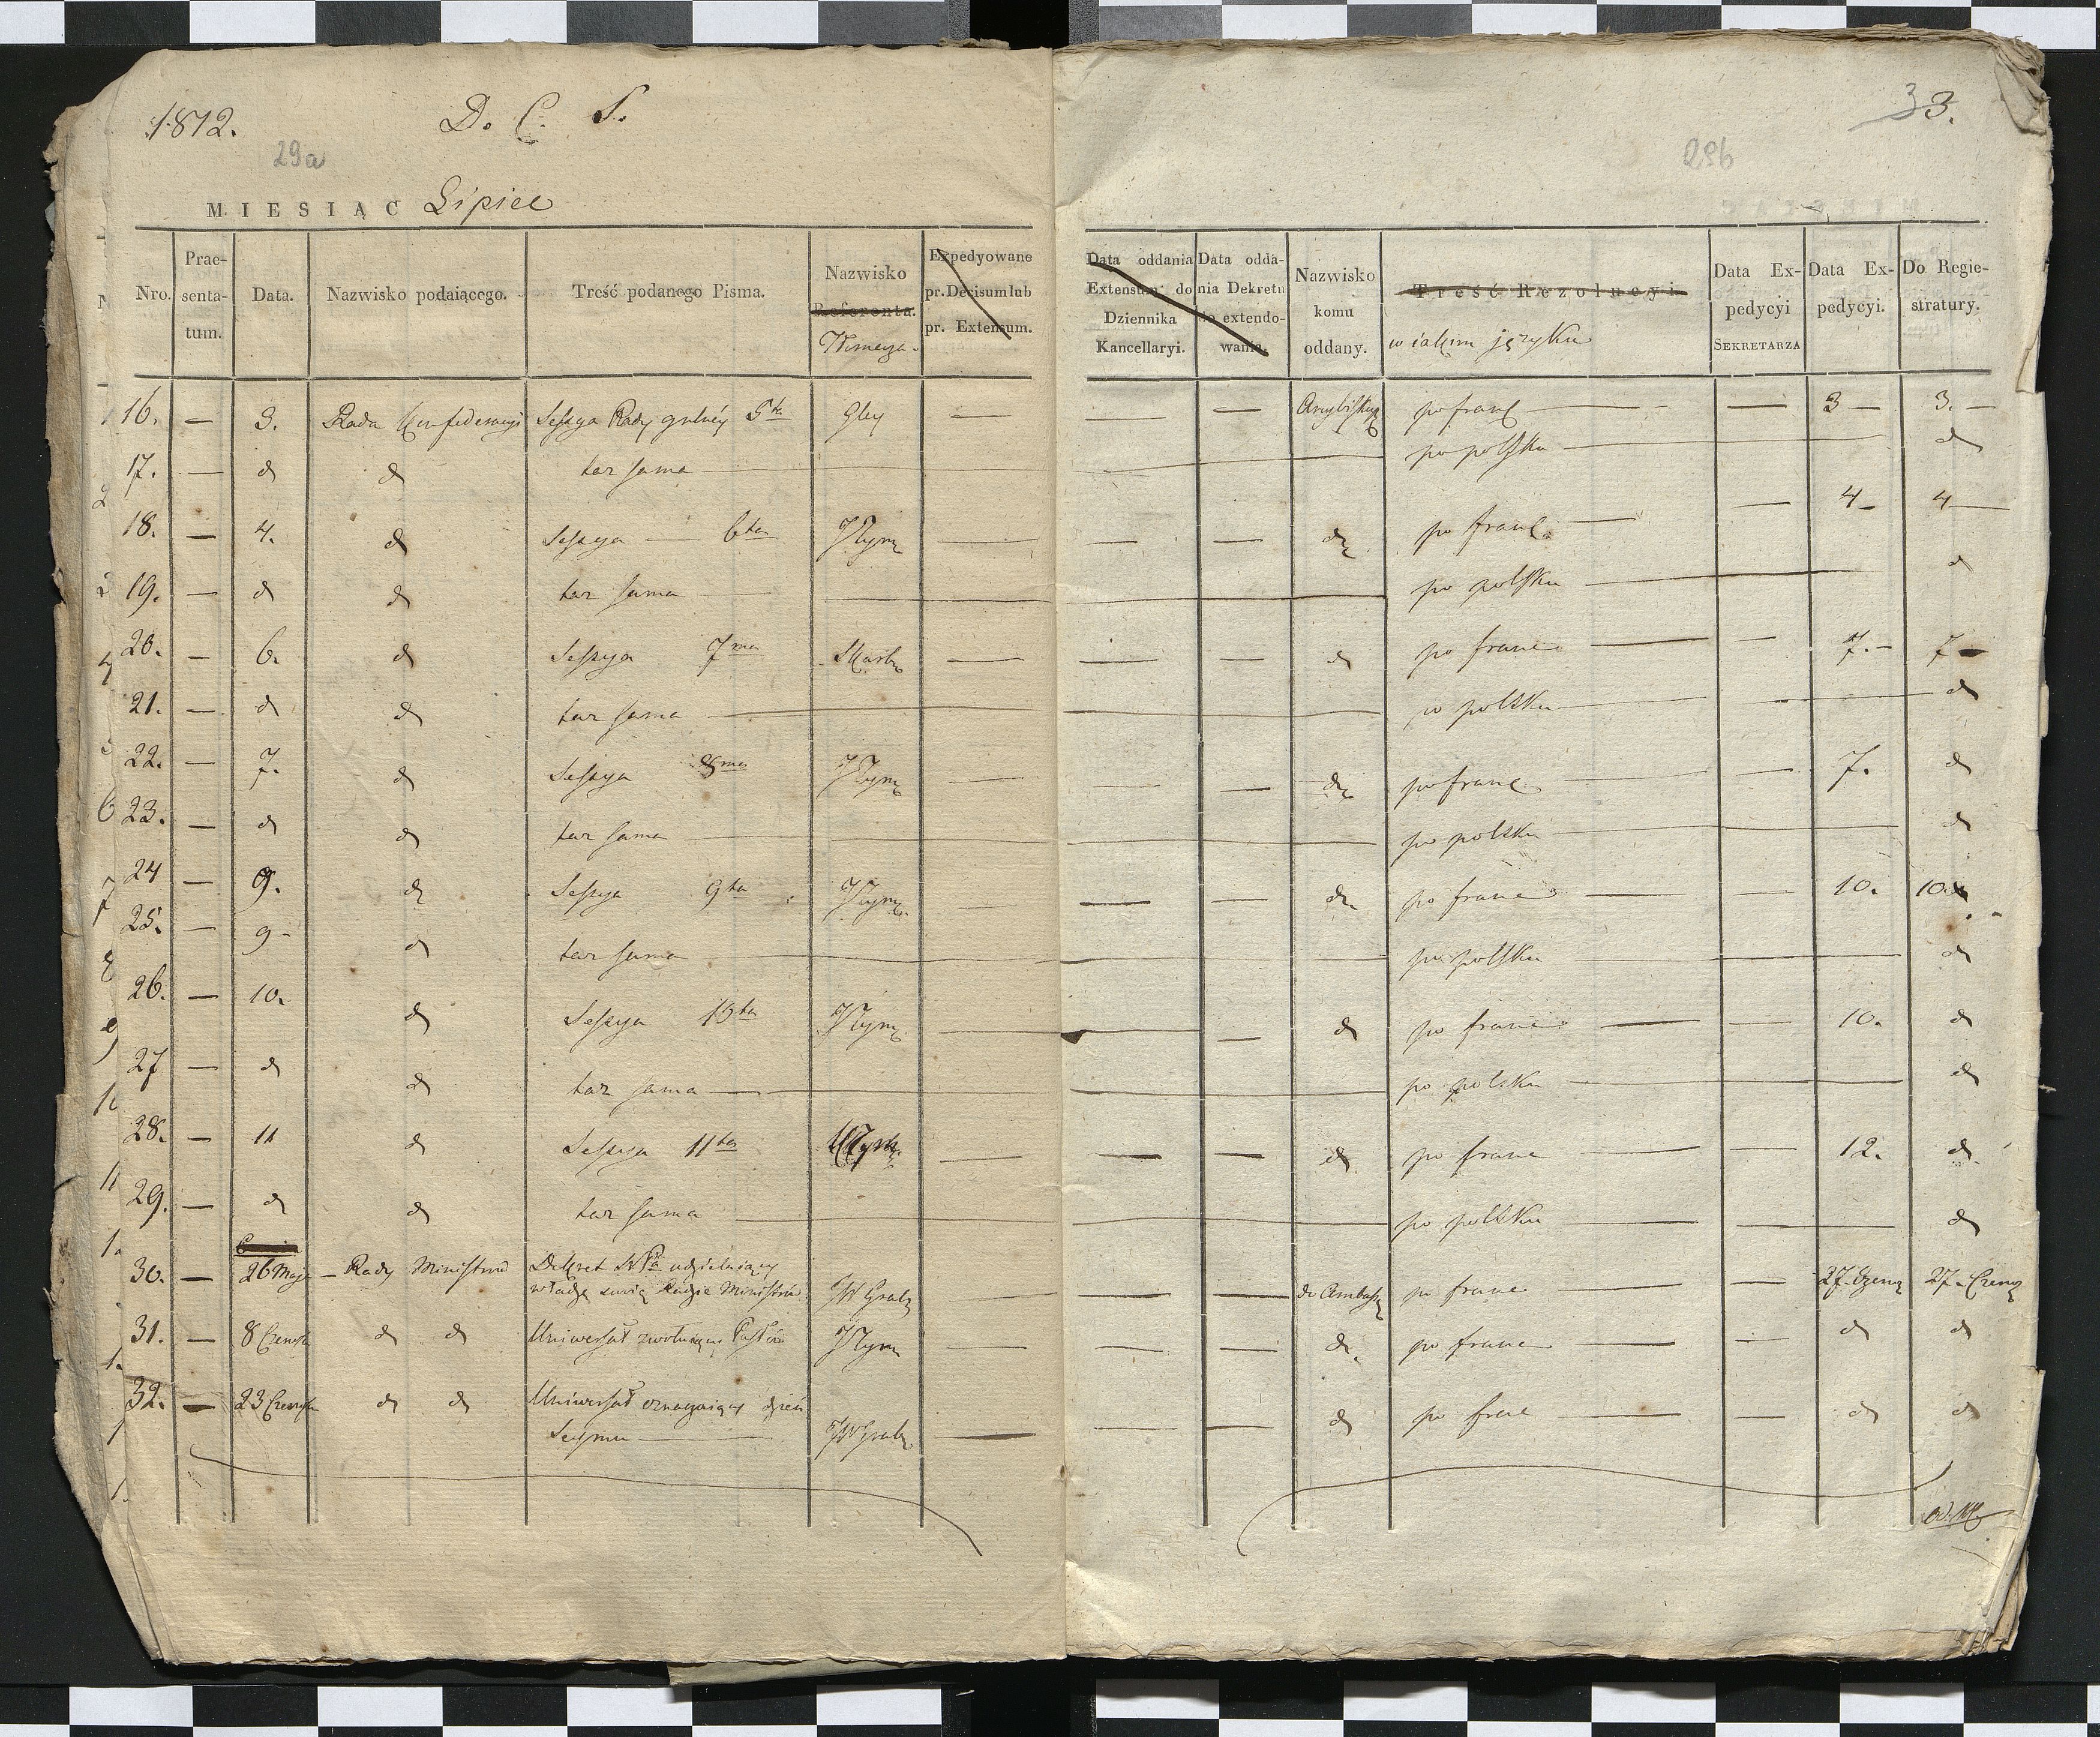 1812. D. C. S.
29a
MIESIĄC Lipiec
Nro. Praesentatum. Data. Nazwisko podaiącego. Treść podanego Pisma. Nazwisko Referenta. Expedyowane pr. Decisum lub pr. Extensum.
16. — 3. Rada Sessya Rady 5ta —
17. — d d taż sama —
18. — 4. d Sessya — 6ta —
19. — d d taż sama —
20. — 6. d Sessya 7ma —
21. — d d taż sama —
22. — 7. d Sessya 8ma —
23. — d d taż sama —
24 — 9. d Sessya 9ta —
25. — 9 - d taż sama —
26. — 10. d Sessya 10ta —
27 — d d taż sama —
28. — 11 d Sessya 11ta —
29. — d d taż sama —
30. — 26 Maja — Rady Ministrów Dekret udzielaiący
władzę Radzie Ministrów JW Grab —
31. — 8 Czerwca d d Uniwersał zwołuiący —
32. — 23 Czerwca d d Uniwersał oznaczaiący dzień
Seymu — JW Grab —
33.
29b
Data oddania Extensum do Dziennika Kancellaryi. Data oddania Dekretu do extendowania. Nazwisko komu oddany. Treść Rezolucyi w iakim języku Data Expedycyi SEKRETARZA Data Expedycyi. Do Regiestratury.
— — po franc — — 3 — 3. —
po polsku — d
— — d po franc. — — 4 — 4 —
po polsku — d
— — d po franc — — 7. — 7 —
po polsku — d
— — d po franc — — 7. d
po polsku — d
— — d po franc — — 10. 10.
po polsku — d
— — d po franc — — 10. d
po polsku — d
— — d po franc — — 12. d
po polsku — — d
— — do Ambass po franc — — 27. Czerw 27. Czerw
— — d. po franc — — d d
— — d po franc — — d d